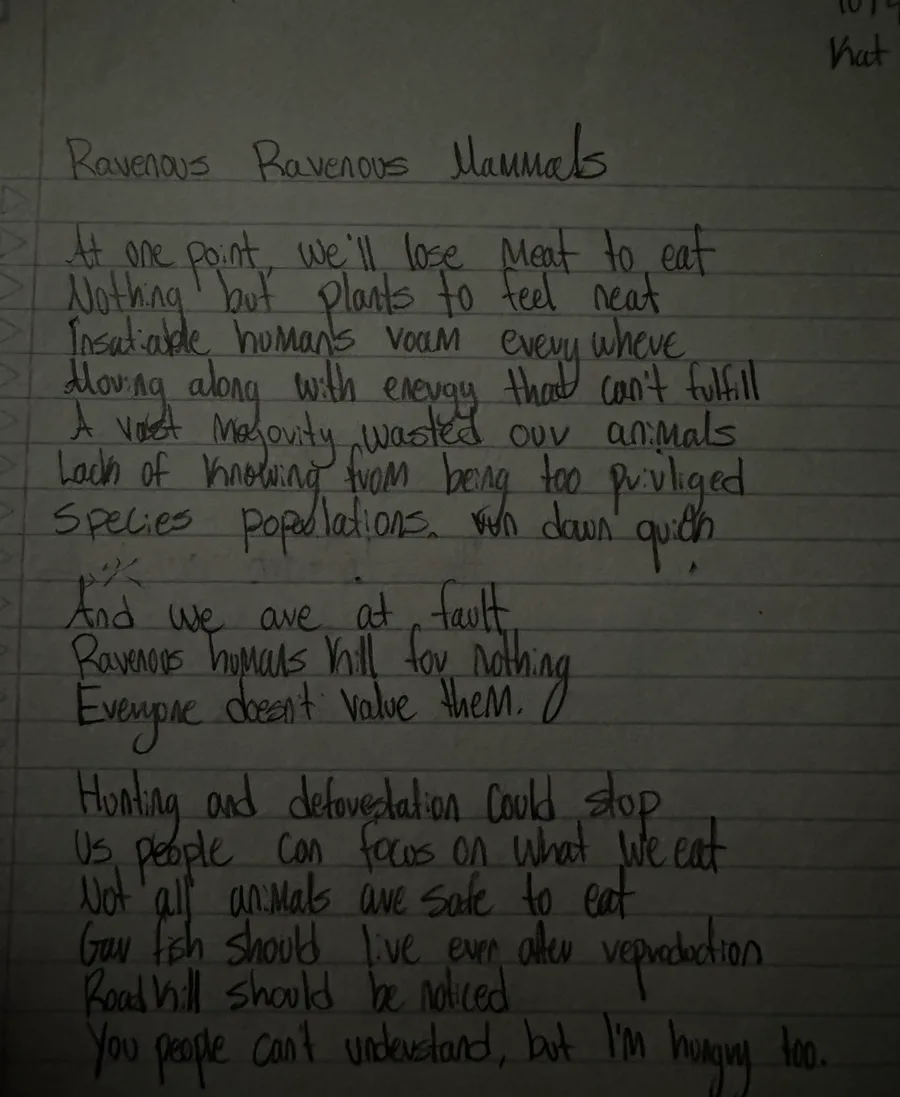 Kat
Ravenous Ravenous Mammals
At one point, we'll lose meat to eat
Nothing but plants to feel neat
Insatiable humans roam everywhere
Moving along with energy that can't fulfill
A vast majority wasted our animals
Lack of knowing from being too privliged
Species populations. run down quick
And we are at fault
Ravenous humans kill for nothing
Everyone doesn't value them.
Hunting and deforestation could stop
Us people can focus on what we eat
Not all animals are safe to eat
Gar fish should live even after reproduction
Roadkill should be noticed
You people can't understand, but I'm hungry too.